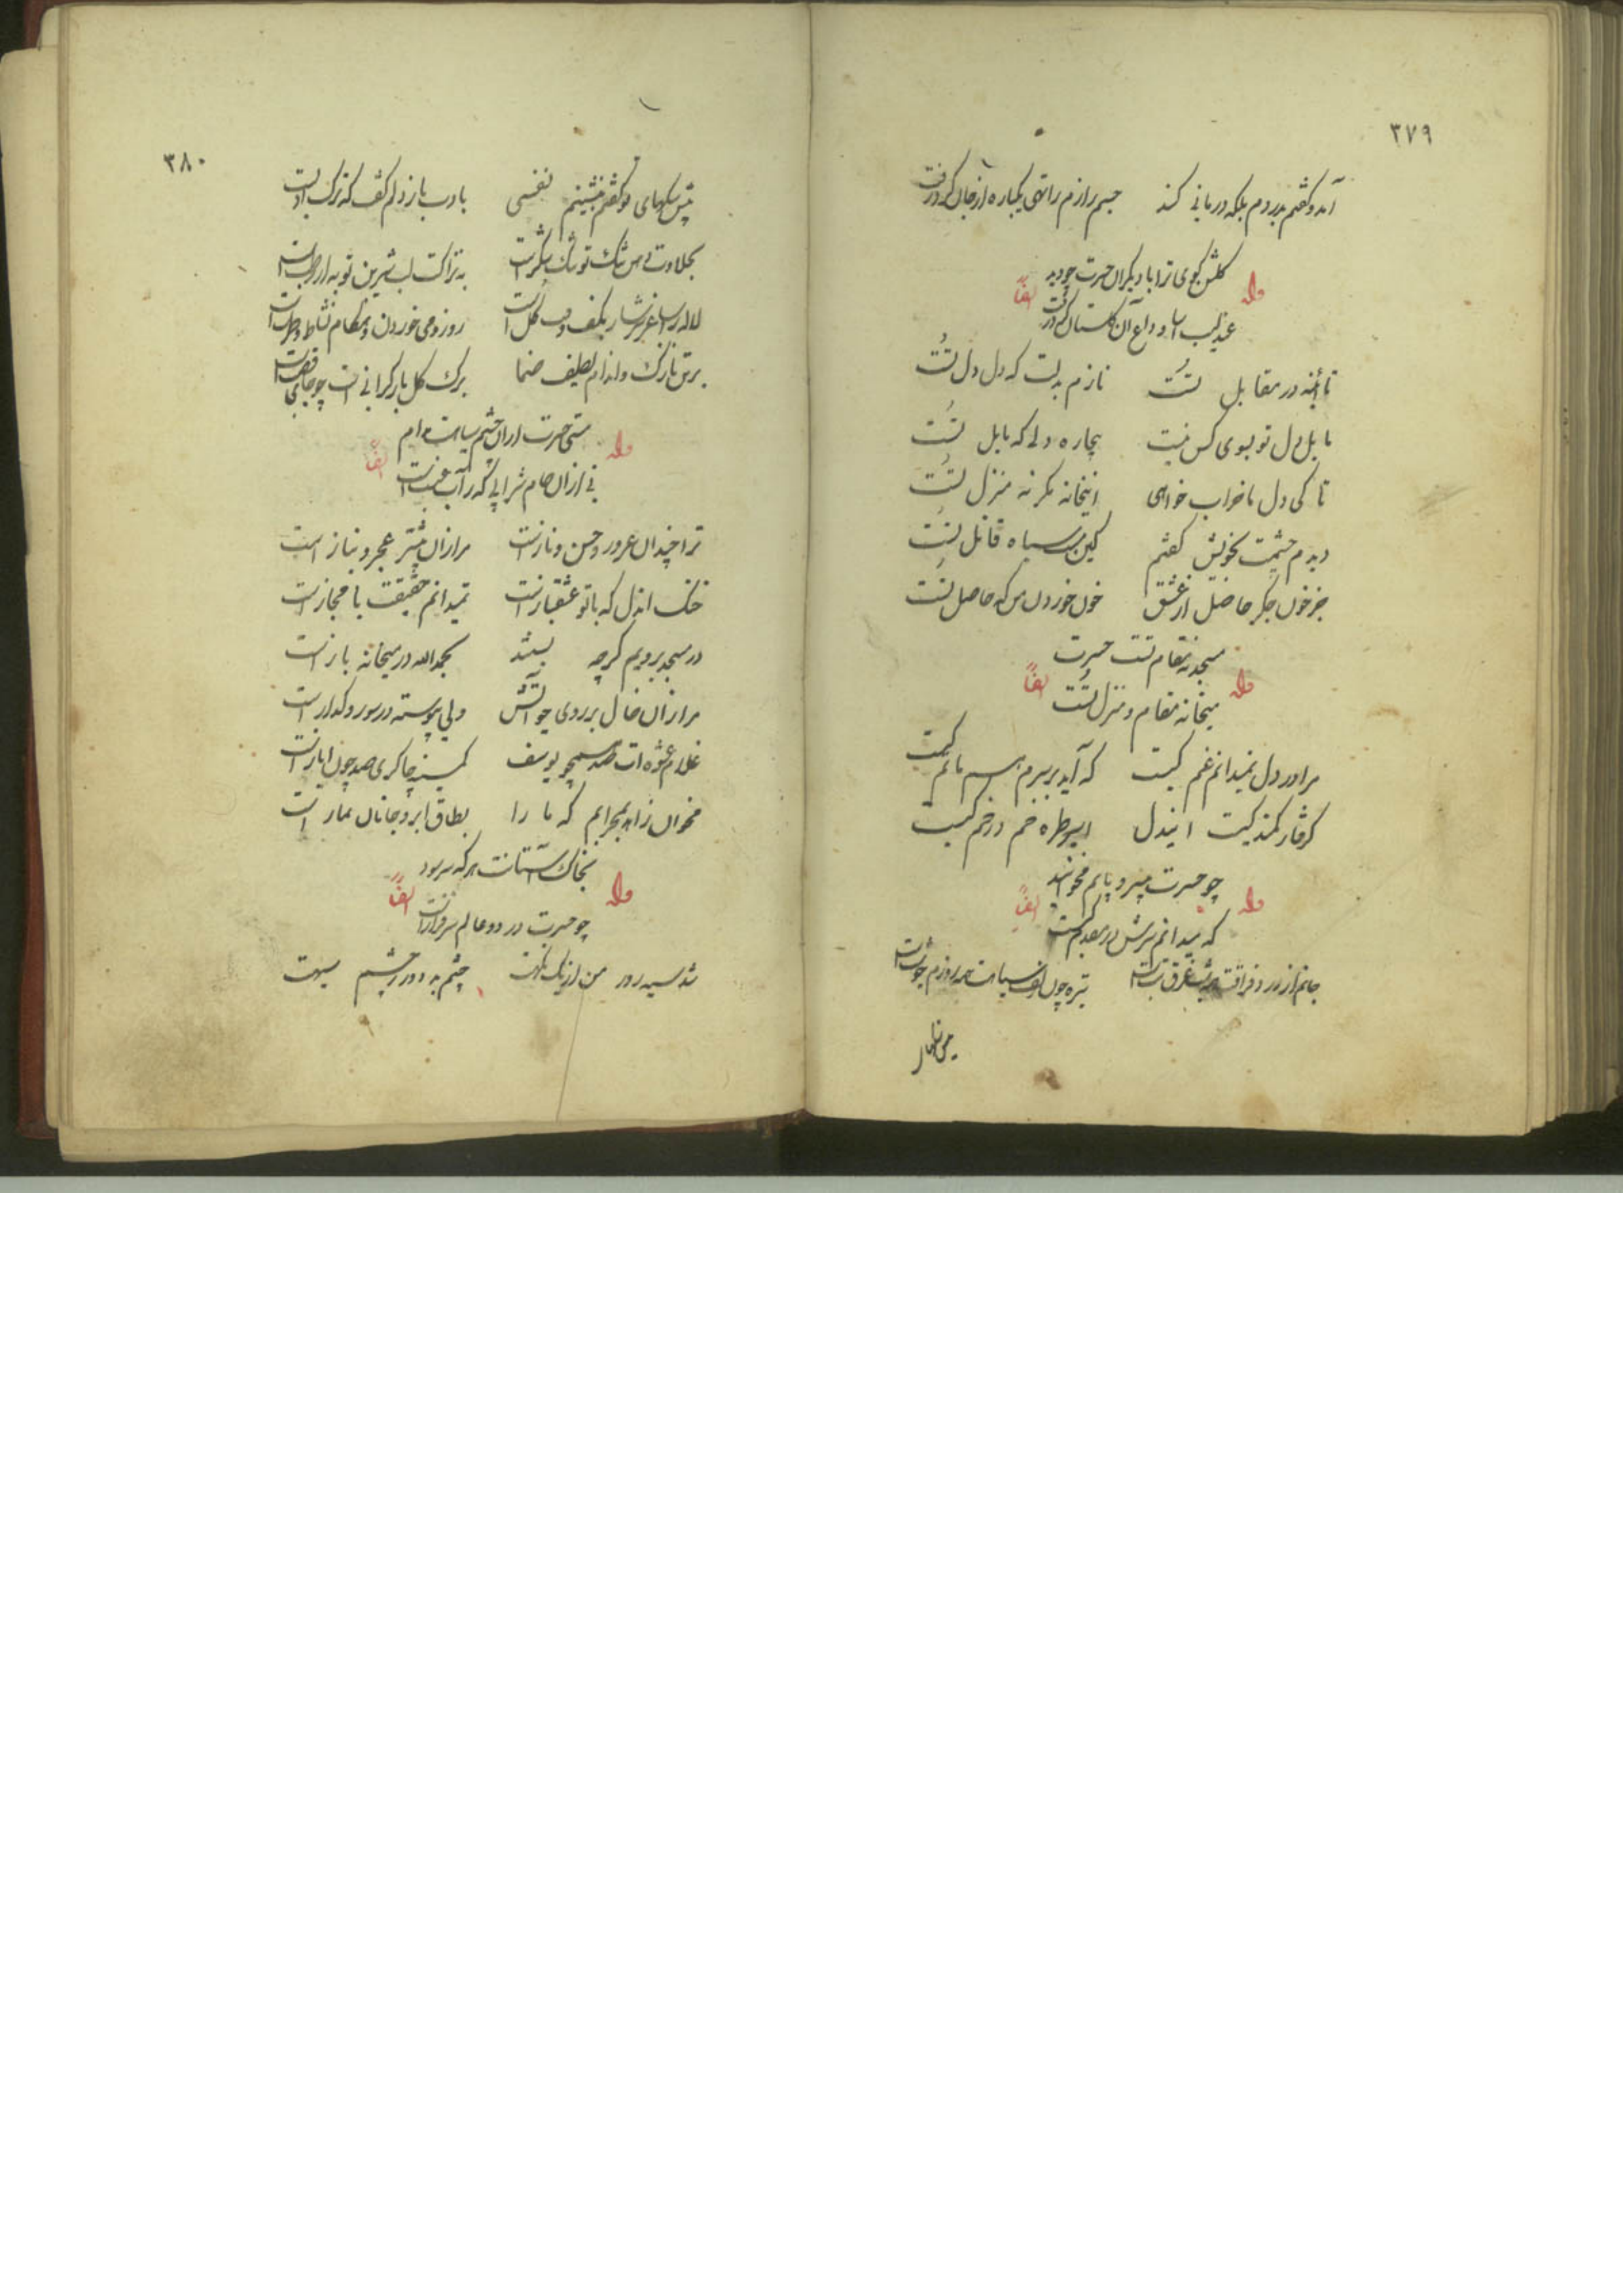 ۳۷۹
آمد و گفتم بدردم بلکه درمانی کند جسم زارم را تهی یکباره از جان کرد و رفت
گلشن کوی ترا با دیگران حسرت چو دید
وله ایضاً
عندلیب آسا وداع آن گلستان کرد و رفت
تا آینه در مقابل تست نازم بدلت که دل دل تست
مایل دل تو بسوی کس نیست بیچاره دلی که مایل تست
تا کی دل ما خراب خواهی اینخانه مگر نه منزل تست
دیدم چشمت بخویش گفتم کین مست سیاه قاتل تست
جز خون جگر چه حاصل از عشق خون خوردن من که حاصل تست
مسجد نه مقام تست حسرت
وله ایضاً
میخانه مقام و منزل تست
مرا در دل نمیدانم غم کیست که آید بر سرم ماتم کیست
گرفتار کمند کیست ایندل اسیر طره خم در خم کیست
چو حسرت بی سر و پایم مخوانید
وله ایضاً
که میدانم سرش در مقدم کیست
جانم از درد فراقت همه شب غرق تبست تیره چون زلف سیاهت همه روزم چو شبست
۳۸۰
پیش سگهای تو گفتم بنشینم نفسی با ادب باز دلم گفت که ترک ادبست
بحلاوت دهن تنگ تو تنگ شکر است به نزاکت لب شیرین تو به از رطبست
لاله را ساغر سرشار بکف وقت گل است روز و می خوردن و هنگام نشاط و طربست
بر تن نازک و اندام لطیف صنما برگ گل بار گرانی است چو جای قصبست
مستی حسرت از آن چشم سیاهست مدام
وله ایضاً
نی از آن جام شرابی که ز آب عنبست
ترا چندان غرور و حسن و نازست مرا زان بیشتر عجز و نیاز است
خنک ایدل که با تو عشقبازست نمیدانم حقیقت یا مجازست
در مسجد برویم گرچه بستند بحمدالله در میخانه بازست
مرا زان خال بر روی چو آتش دلی پیوسته در سوز و گداز است
غلام عشوه ات صد همچو یوسف کمینه چاکری صد چون ایازست
مخوان زاهد بمحرابم که ما را بطاق ابرو جانان نماز است
بخاک آستانت هر که سر سود
وله ایضاً
چو حسرت در دو عالم سرفرازست
شد سیه روز من از یک نگهت چشم بد دور ز چشم سیهت